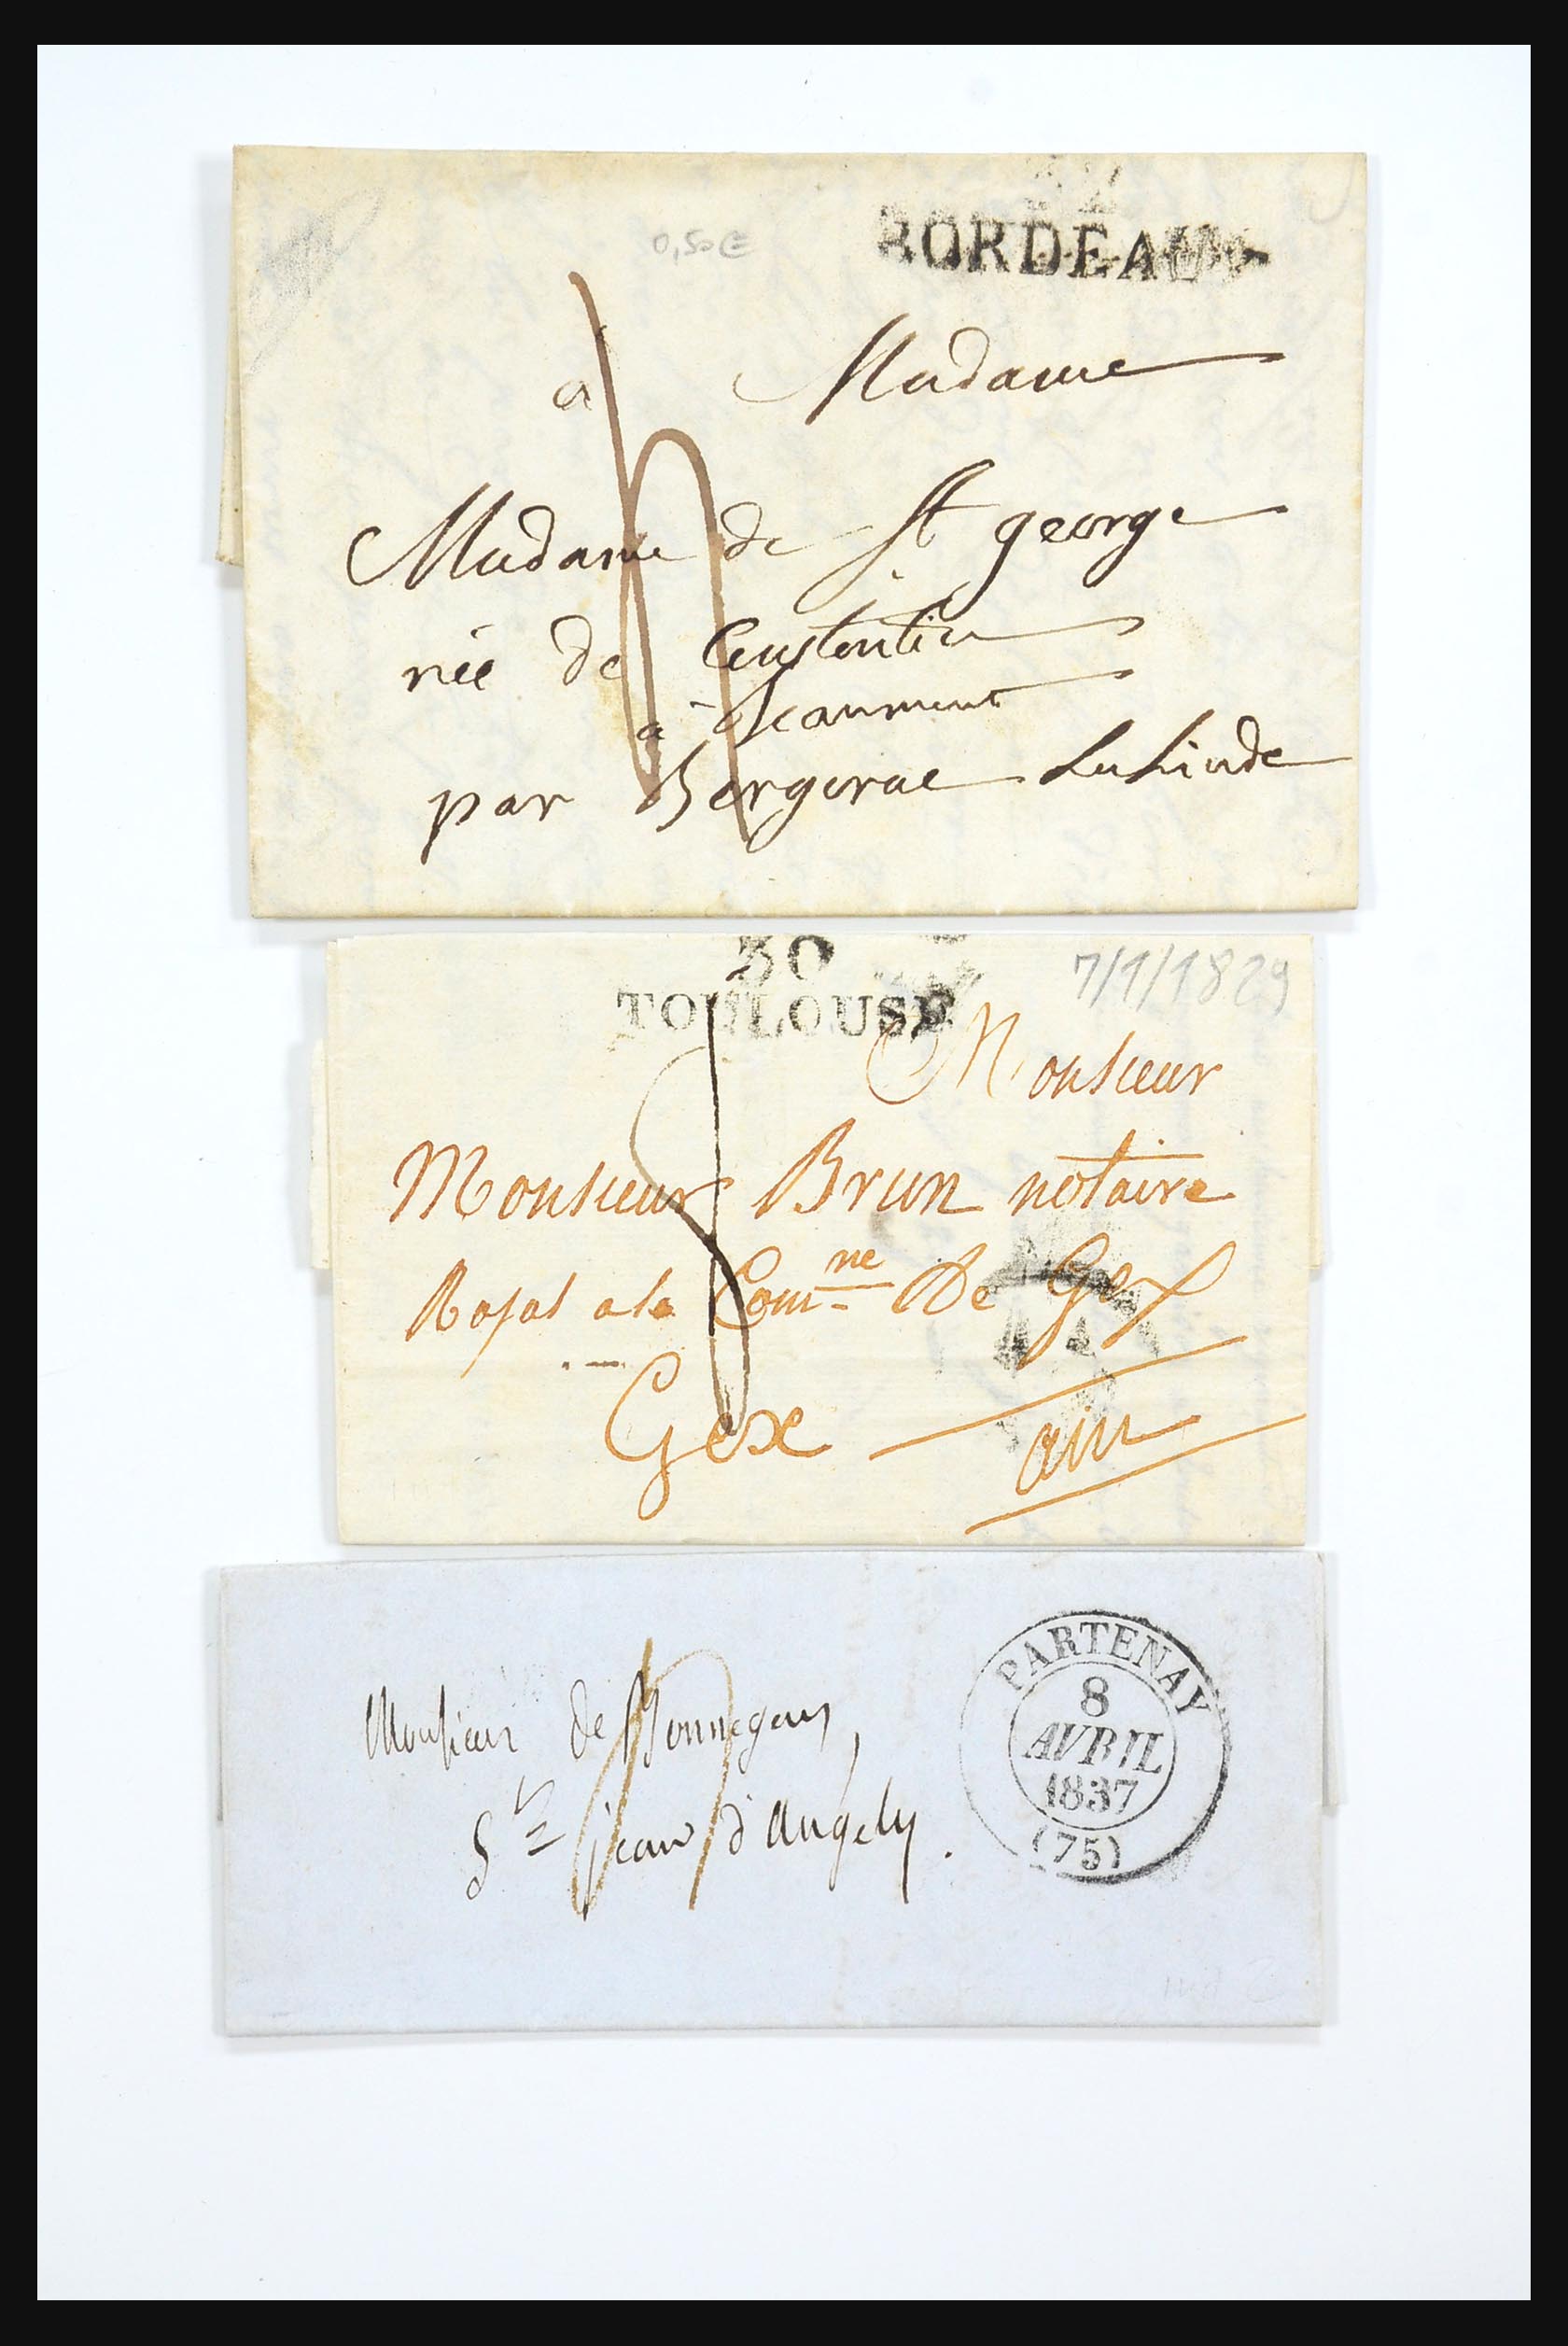 BORDEAUX
0,50€
à Madame
Madame de St george
née de Constentin
à
par Bergerac La Linde
30
TOULOUSE
7/1/1829
Monsieur
Monsieur Brun notaire
Royal a la Com.ne De Gex
Gex ain
PARTENAY
8
AVRIL
1837
(75)
Monsieur de Monnegous,
St jean d'Angely.